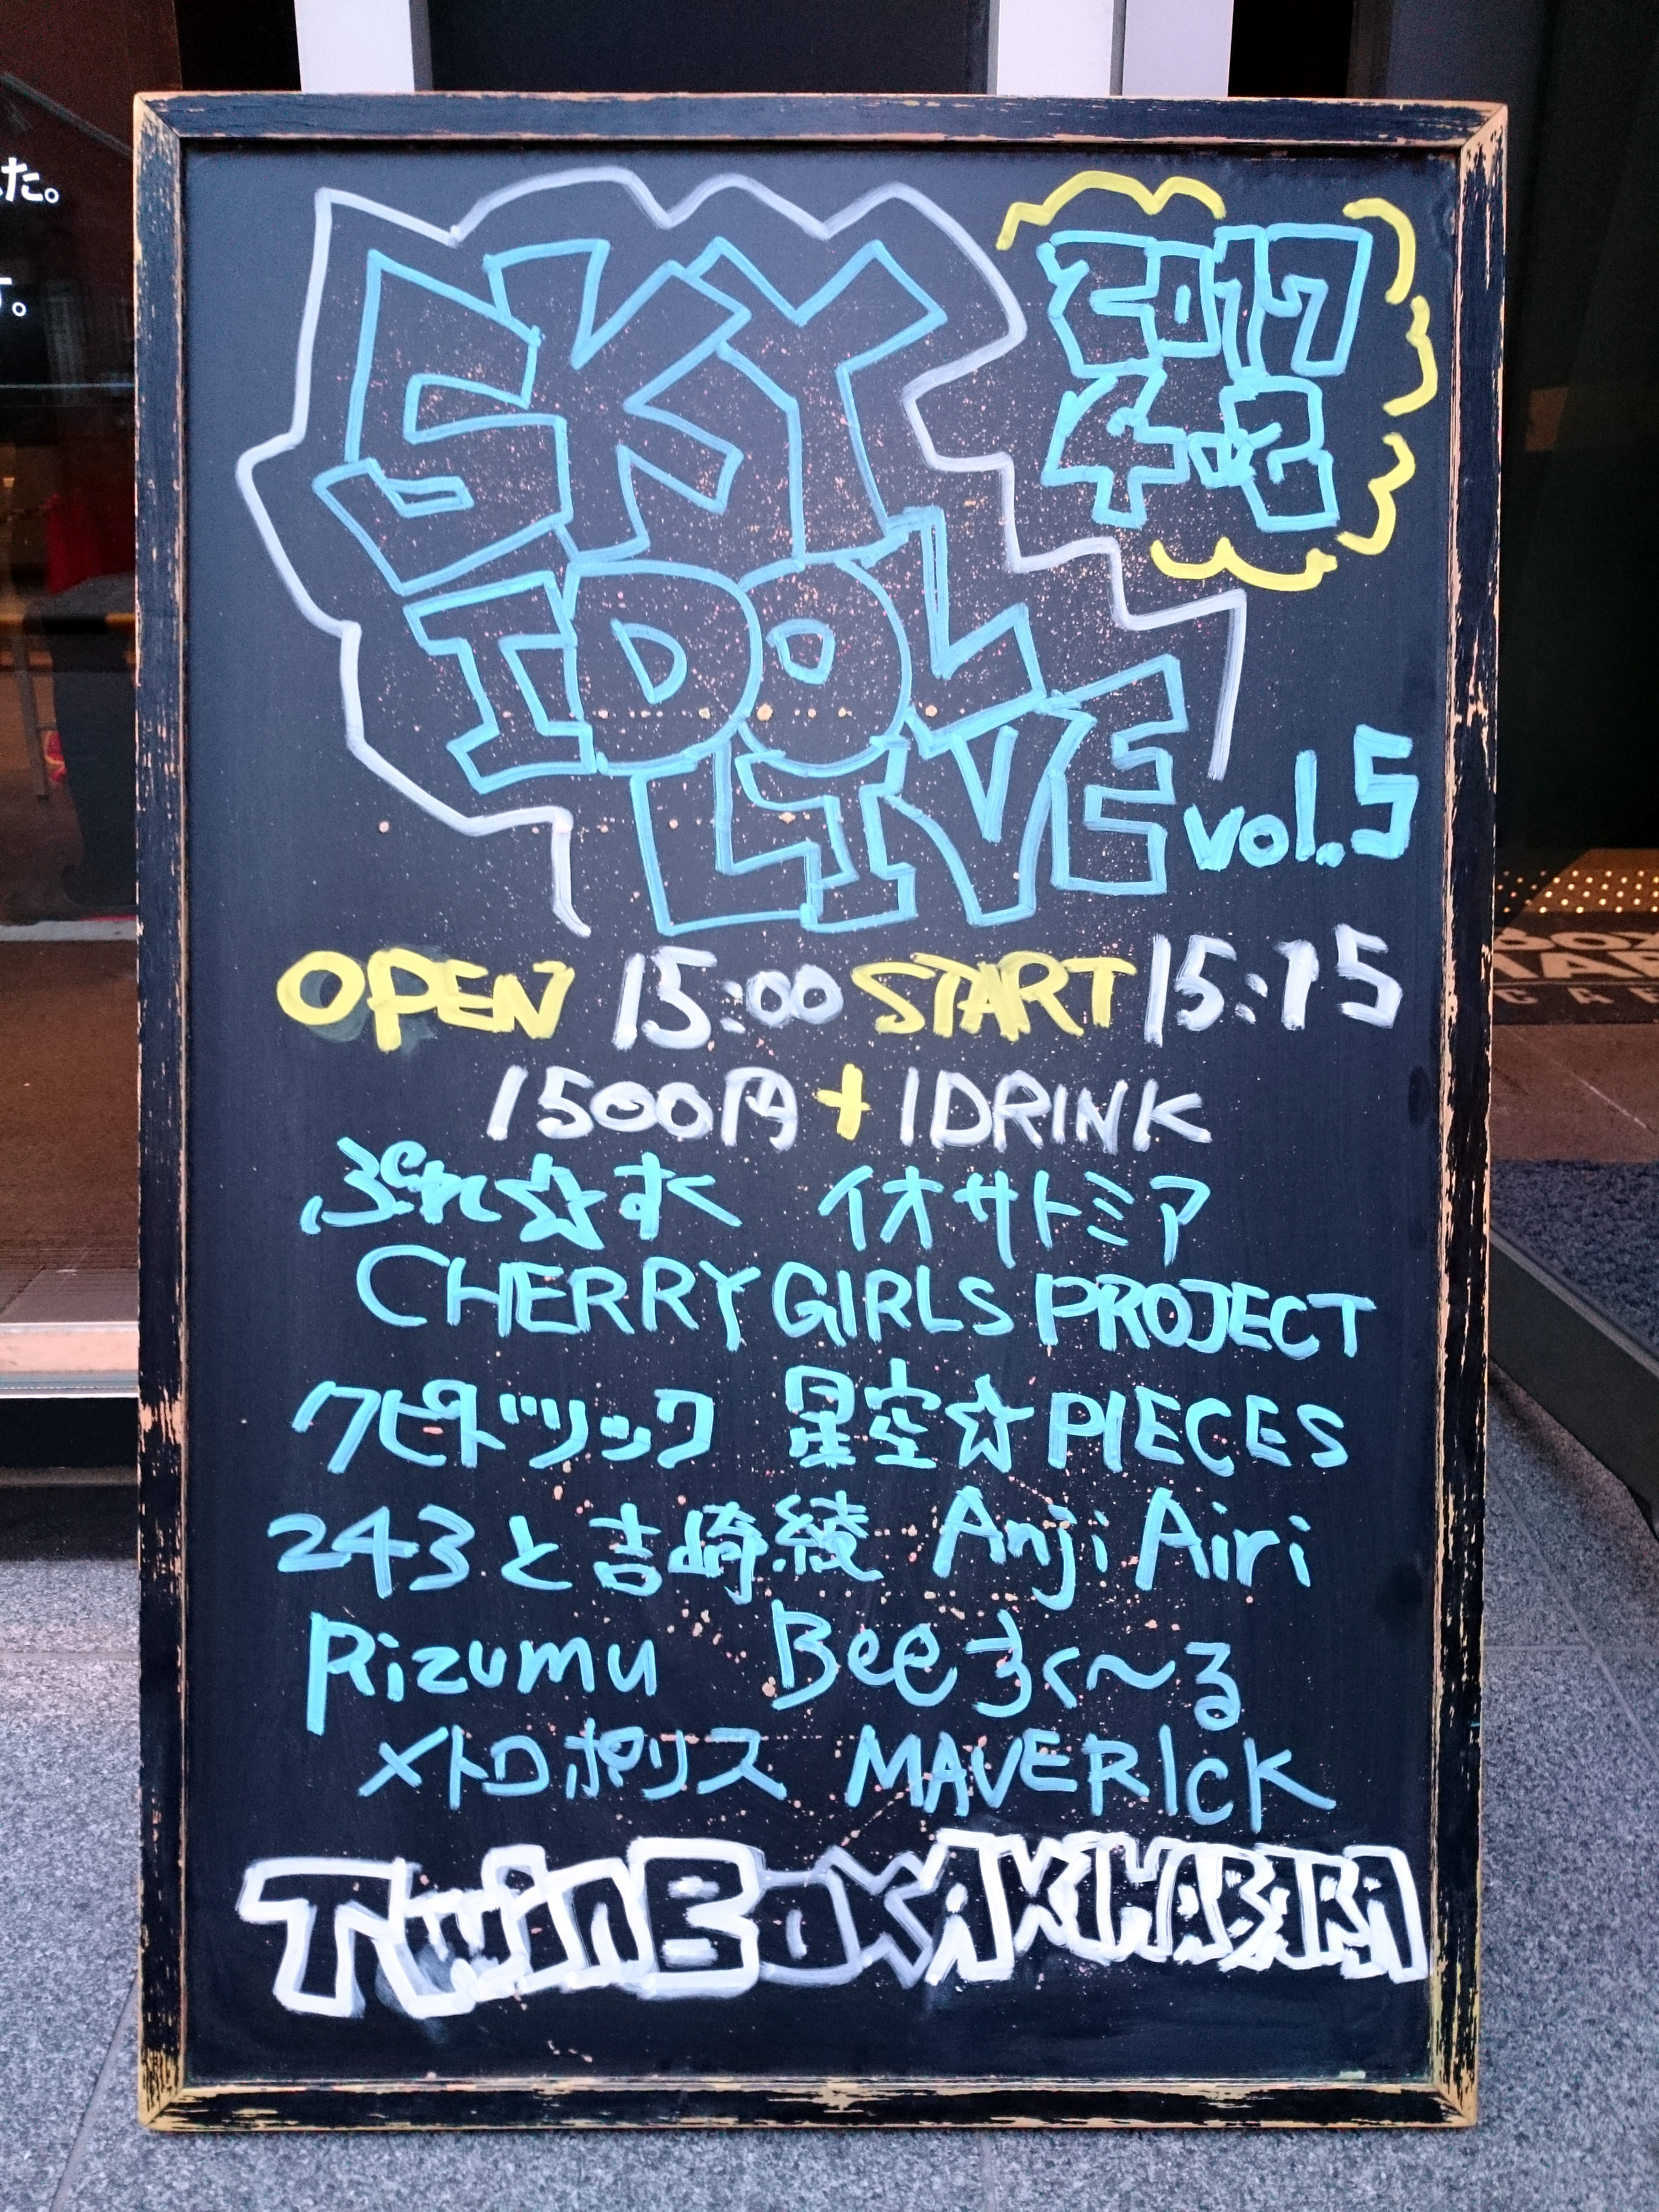 た。
す。
SKY
IDOL
LIVE vol.5
2017
4.2
OPEN 15:00 START 15:15
1500円+1DRINK
ぷれ☆すく イオサトミア
CHERRY GIRLS PROJECT
クピドヅック 星空☆PIECES
243と吉崎綾 Anji Airi
Rizumu Beeすく〜る
メトロポリス MAVERICK
TwinBox AKIHABARA